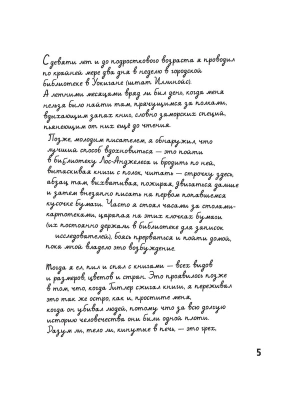 С девяти лет и до подросткового возраста я проводил
по крайней мере два дня в неделю в городской
библиотеке в Уокигане (штат Иллинойс).
А летними месяцами вряд ли был день, когда меня
нельзя было найти там, прячущимся за полками,
вдыхающим запах книг, словно заморских специй,
пьянеющим от них ещё до чтения.
Позже молодым писателем, я обнаружил, что
лучший способ вдохновиться — это пойти
в библиотеку Лос-Анджелеса и бродить по ней,
вытаскивая книги с полок, читать — строчку здесь,
абзац там, выхватывая, пожирая, двигаться дальше
и затем внезапно писать на первом попавшемся
кусочке бумаги. Часто я стоял часами за столами-
картотеками, царапая на этих клочках бумаги
(их постоянно держали в библиотеке для записок
исследователей), боясь прерваться и пойти домой,
пока мной владело это возбуждение.
Тогда я ел, пил и спал с книгами — всех видов
и размеров, цветов и стран. Это проявилось позже
в том, что, когда Гитлер сжигал книги, я переживал
это так же остро, как и, простите меня,
когда он убивал людей, потому что за всю долгую
историю человечества они были одной плоти.
Разум ли, тело ли, кинутые в печь — это грех,
5